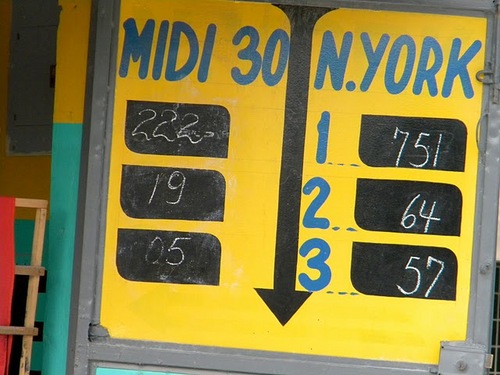 MIDI 30 N.YORK
222 1 751
19 2 64
05 3 57